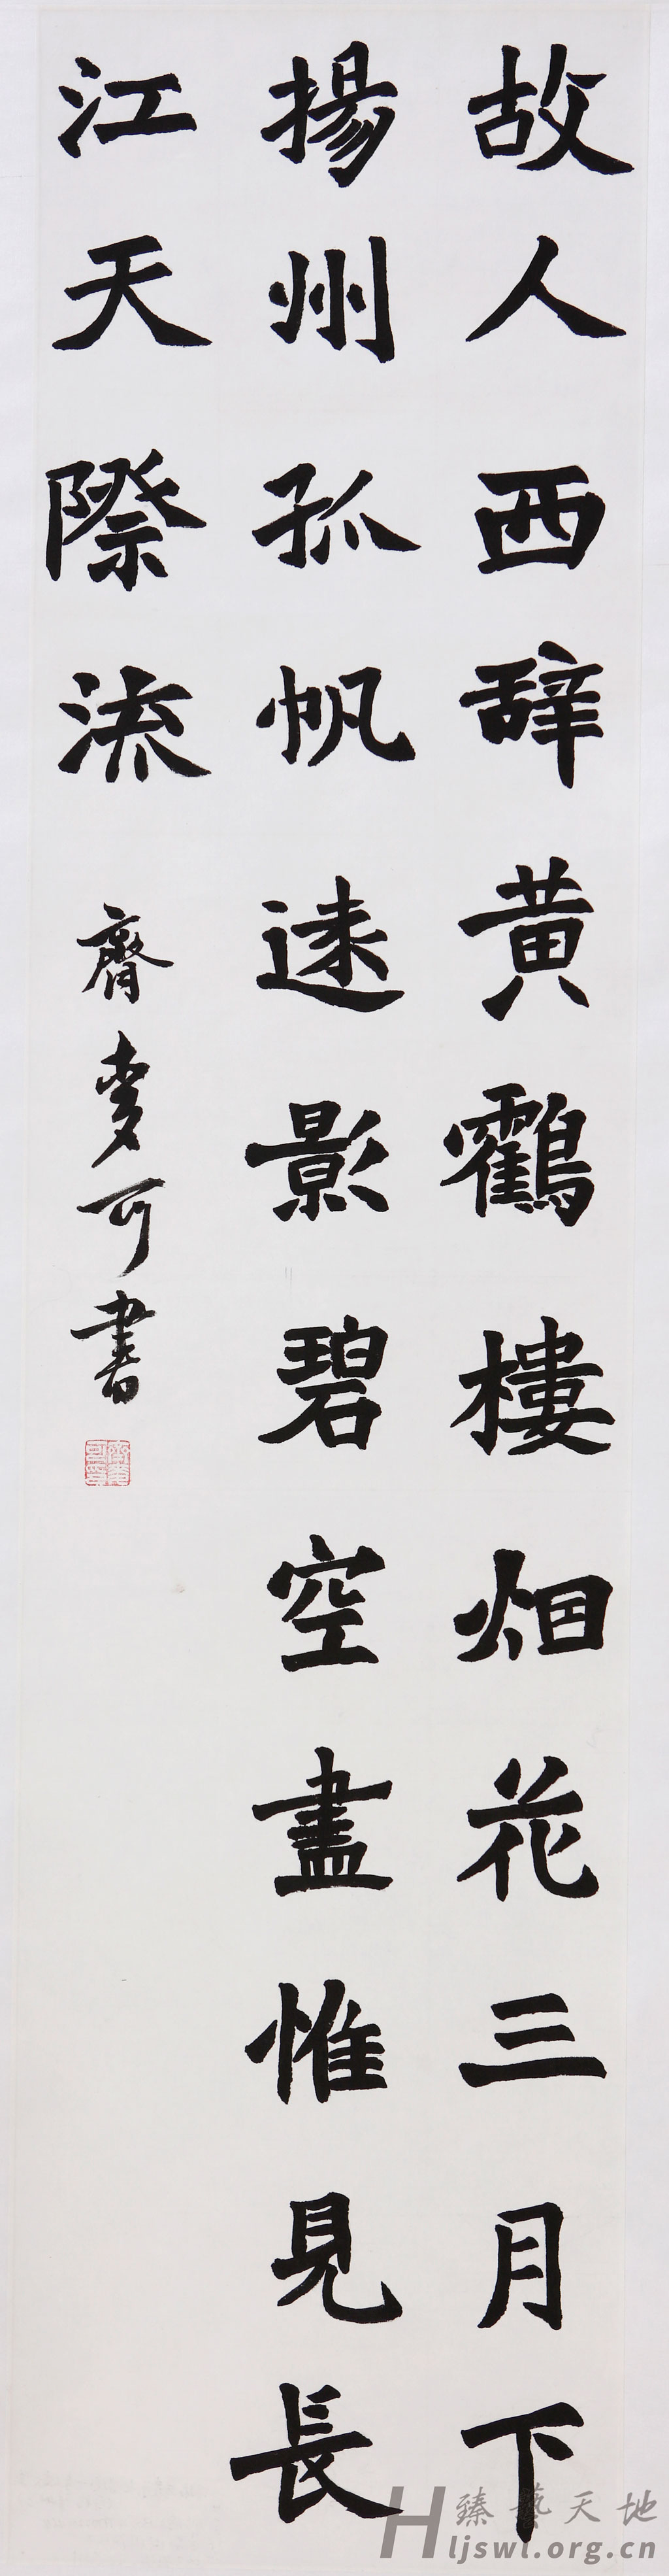 故人西辞黄鶴樓烟花三月下
揚州孤帆遠影碧空盡惟見長
江天際流
齊可書
臻藝天地
Hljswl.org.cn